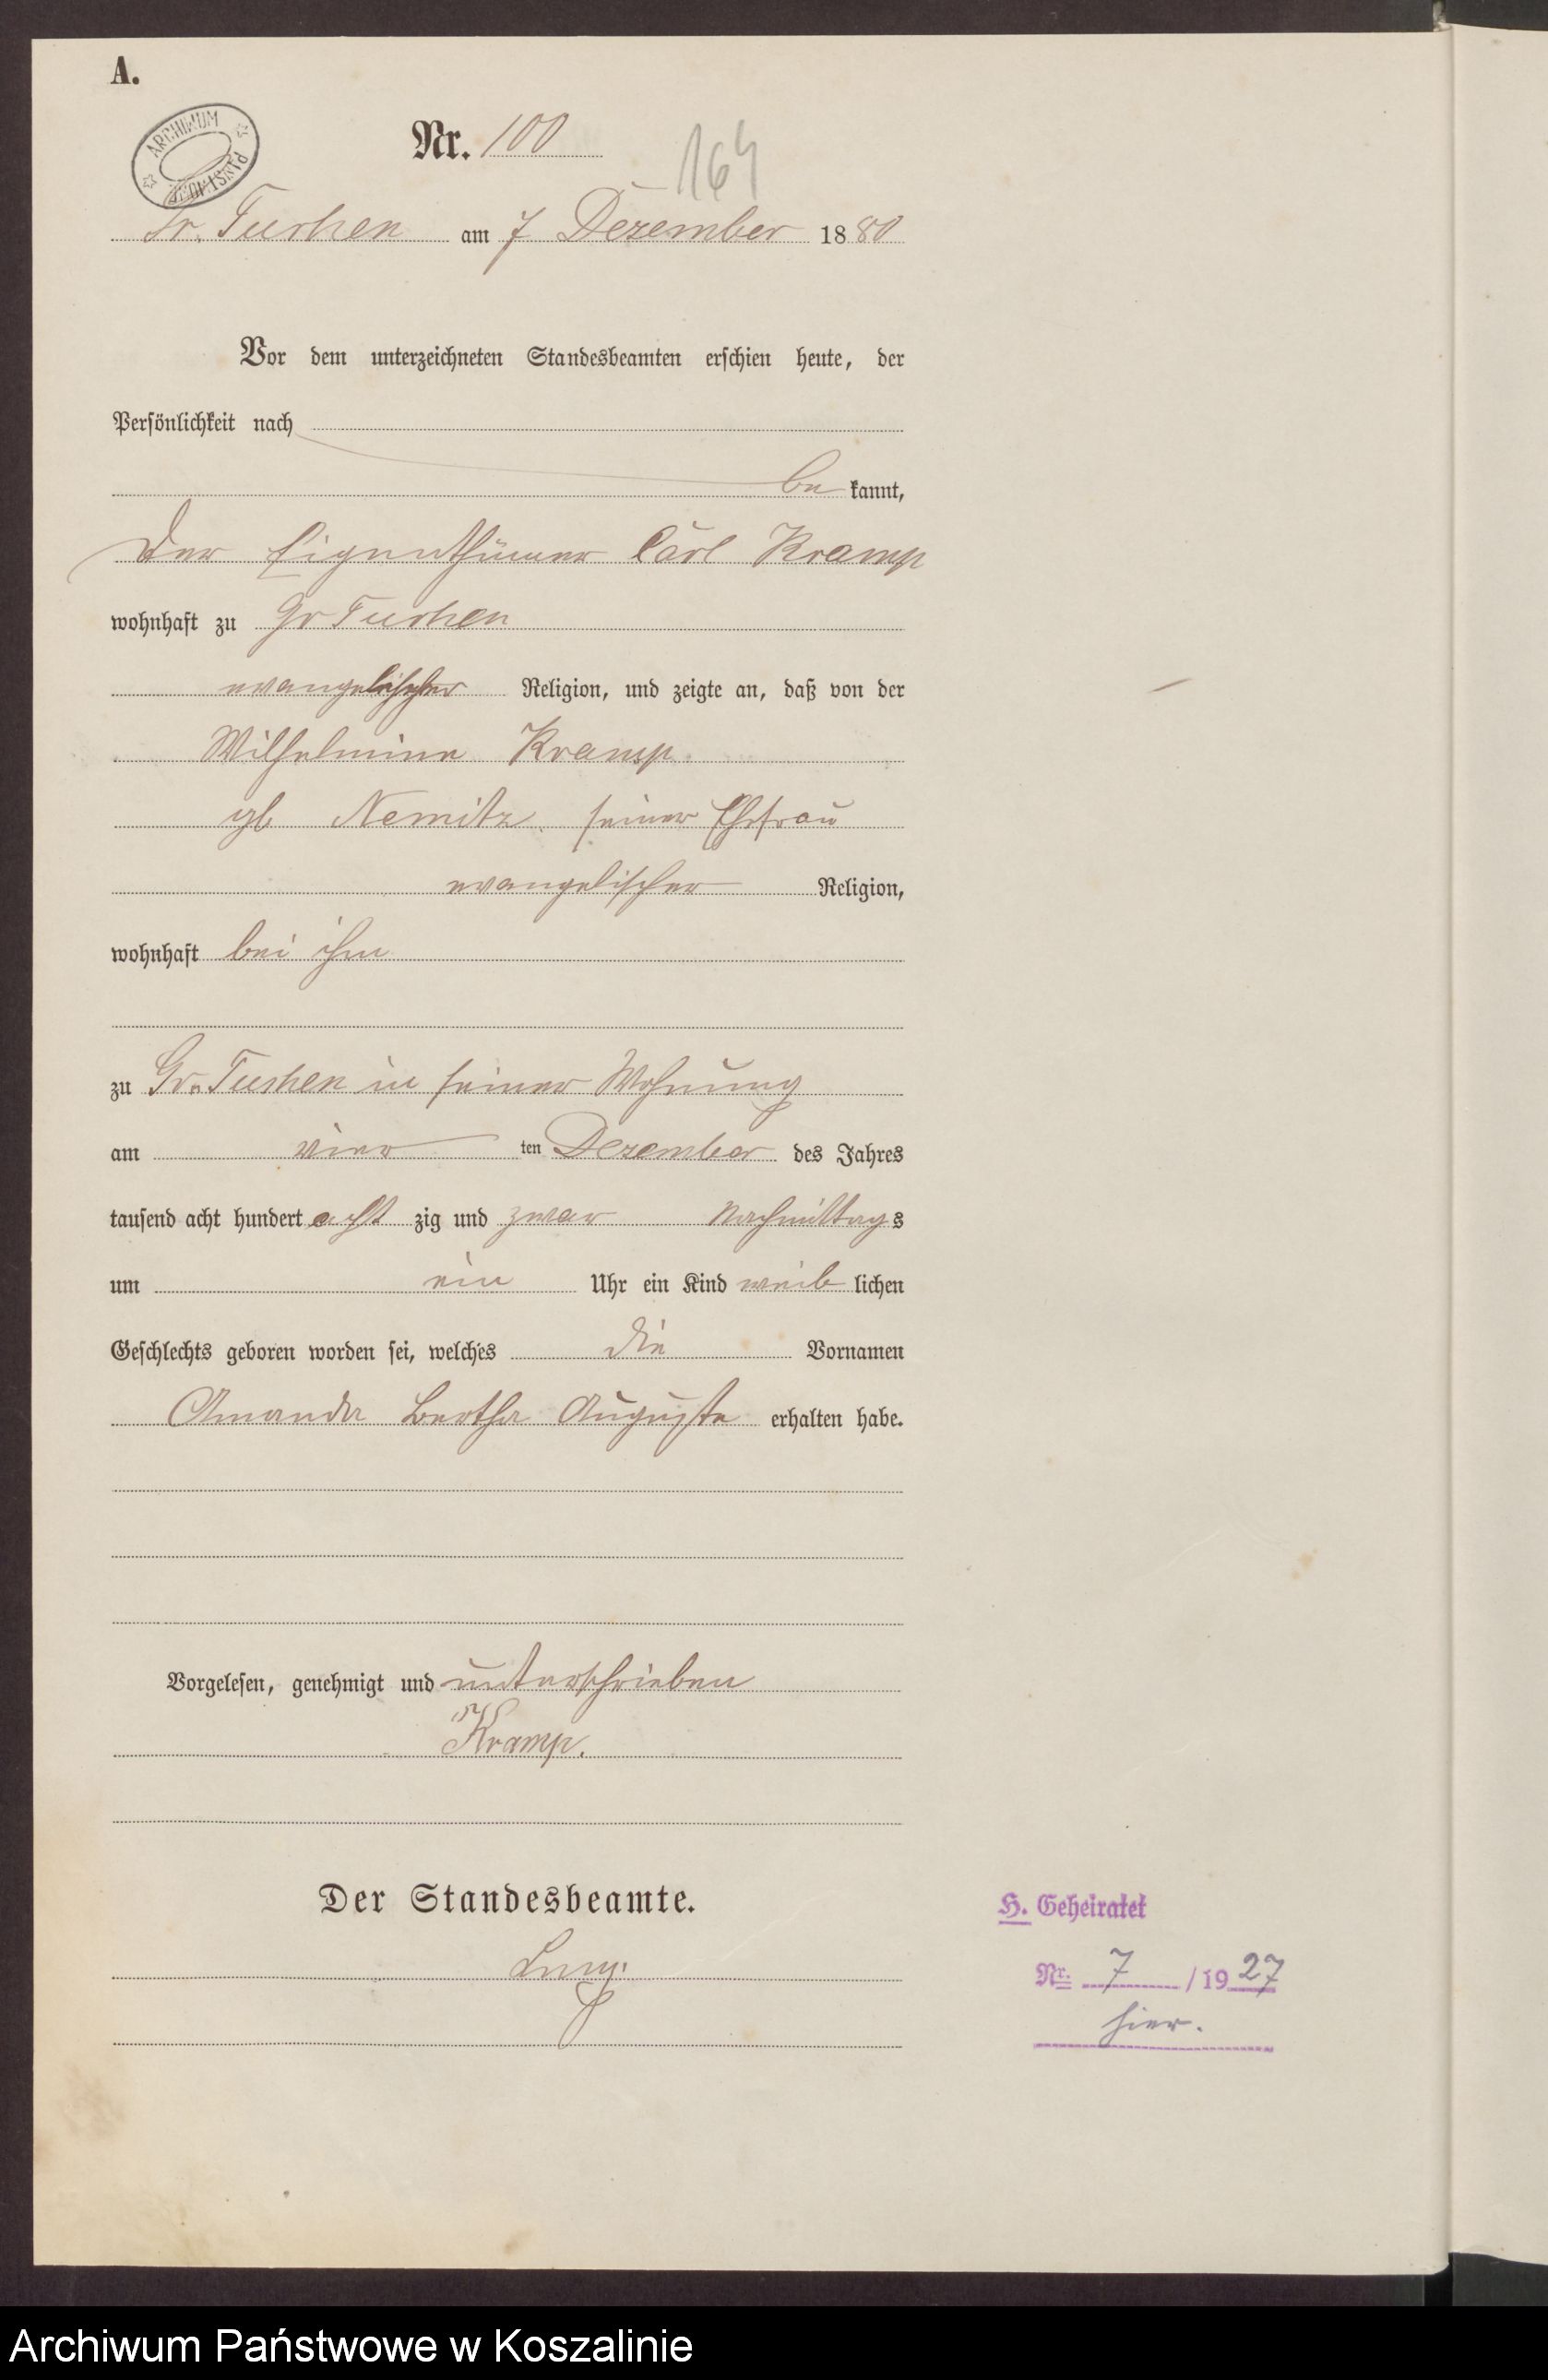 A.
ARCHIWUM PAŃSTWOWE
Nr. 100
164
Gr. Tuchen am 7 Dezember 1880
Vor dem unterzeichneten Standesbeamten erschien heute, der
Persönlichkeit nach
be kannt,
der Eigenthümer Carl Kramp
wohnhaft zu Gr Tuchen
evangelischer Religion, und zeigte an, daß von der
Wilhelmine Kramp
gb Nemitz seiner Ehefrau
evangelischer Religion,
wohnhaft bei ihm
zu Gr. Tuchen in seiner Wohnung
am vier ten Dezember des Jahres
tausend acht hundert acht zig und zwar Nachmittags
um ein Uhr ein Kind weib lichen
Geschlechts geboren worden sei, welches die Vornamen
Amanda Bertha Auguste erhalten habe.
Vorgelesen, genehmigt und unterschrieben
Kramp.
Der Standesbeamte.
H. Geheiratet
Nr. 7 /1927
hier.
Archiwum Państwowe w Koszalinie